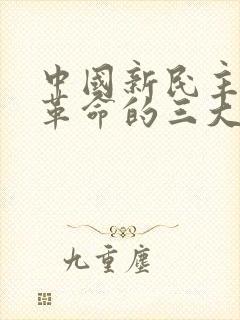 中國新民主
革命的三大
九重塵